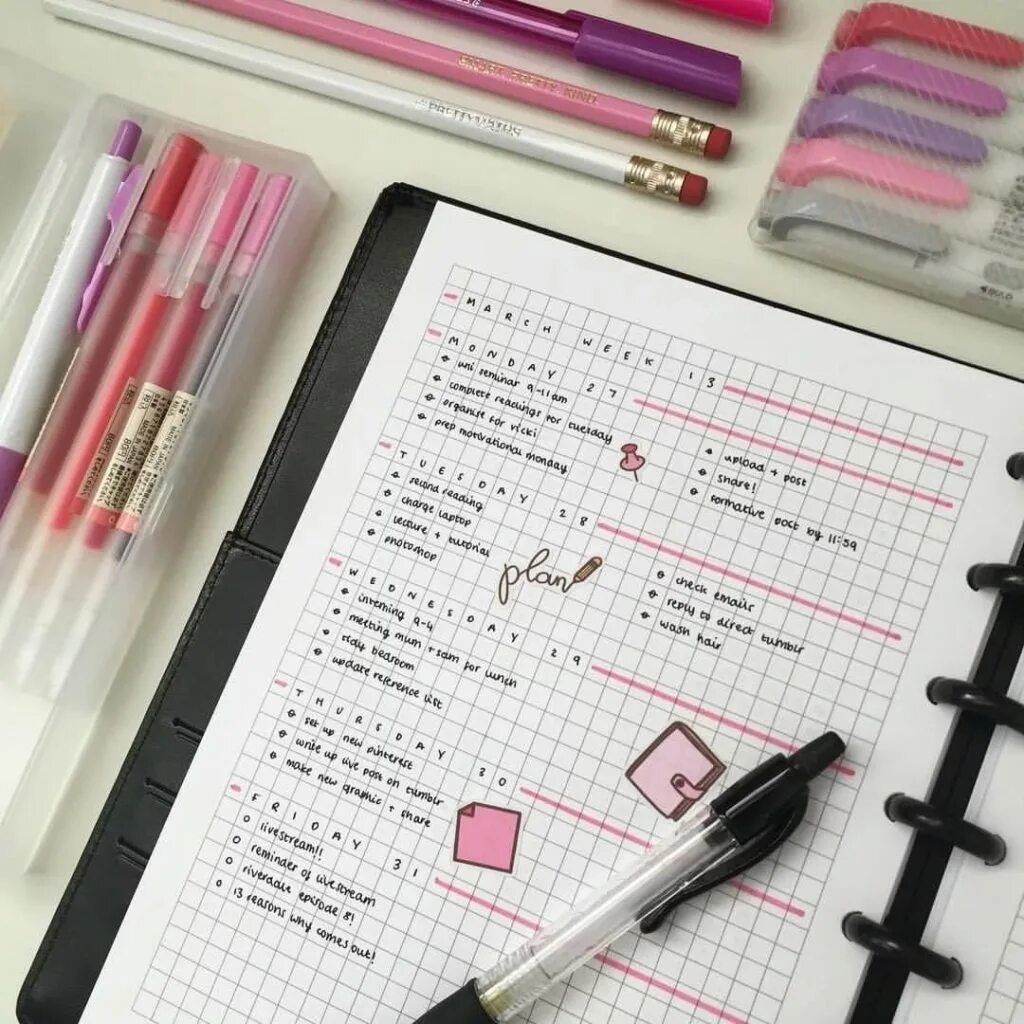 MARCH WEEK 13
MONDAY 27
uni seminar 9-11am
complete readings for tuesday
organise for vicki
prep motivational monday
upload + post
share!
formative post by 11:59
TUESDAY 28
second reading
charge laptop
lecture + tutorial
photoshop
plan
check emails
reply to direct tumblr
wash hair
WEDNESDAY 29
interning 9-4
meeting mum + sam for lunch
tidy bedroom
update reference list
THURSDAY 30
set up new pinterest
write up live post on tumblr
make new graphic + share
FRIDAY 31
livestream!!
reminder of livestream
riverdale episode 8!
13 reasons why comes out!